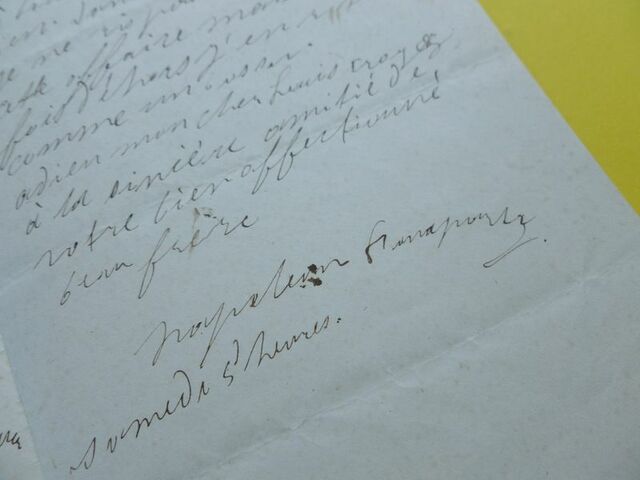 ne
affaire mon
fois dehors j'en
comme un ours.
adieu mon cher Louis croyez
à la sincère amitié de
votre bien affectionné
beau frère
Napoleon Bonaparte
samedi 5 heures.